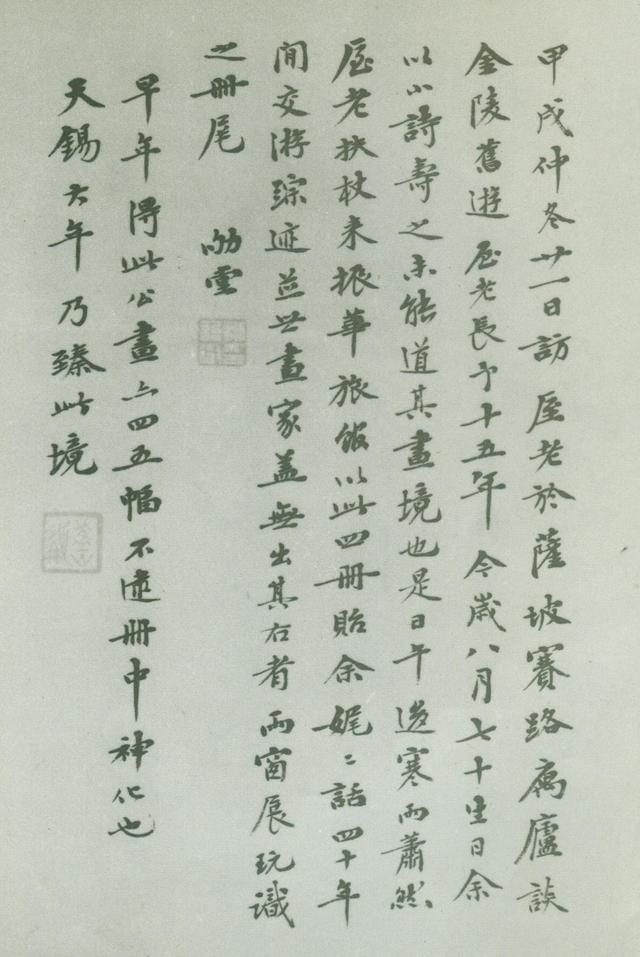 甲戌仲冬廿一日訪 厔老於薩坡賽路寓廬談
金陵舊遊 厔老長予十五年 今歲八月七十生日余
以小詩壽之未能道其畫境也是日午後寒雨蕭然
厔老扶杖来振華旅館以此四冊貽余娓〻話四十年
间交游踪迹並世畫家盖無出其右者 雨窗展玩識
之冊尾 勱雲
早年得此公畫亦四五幅不逮冊中神化也
天錫六年 乃臻此境